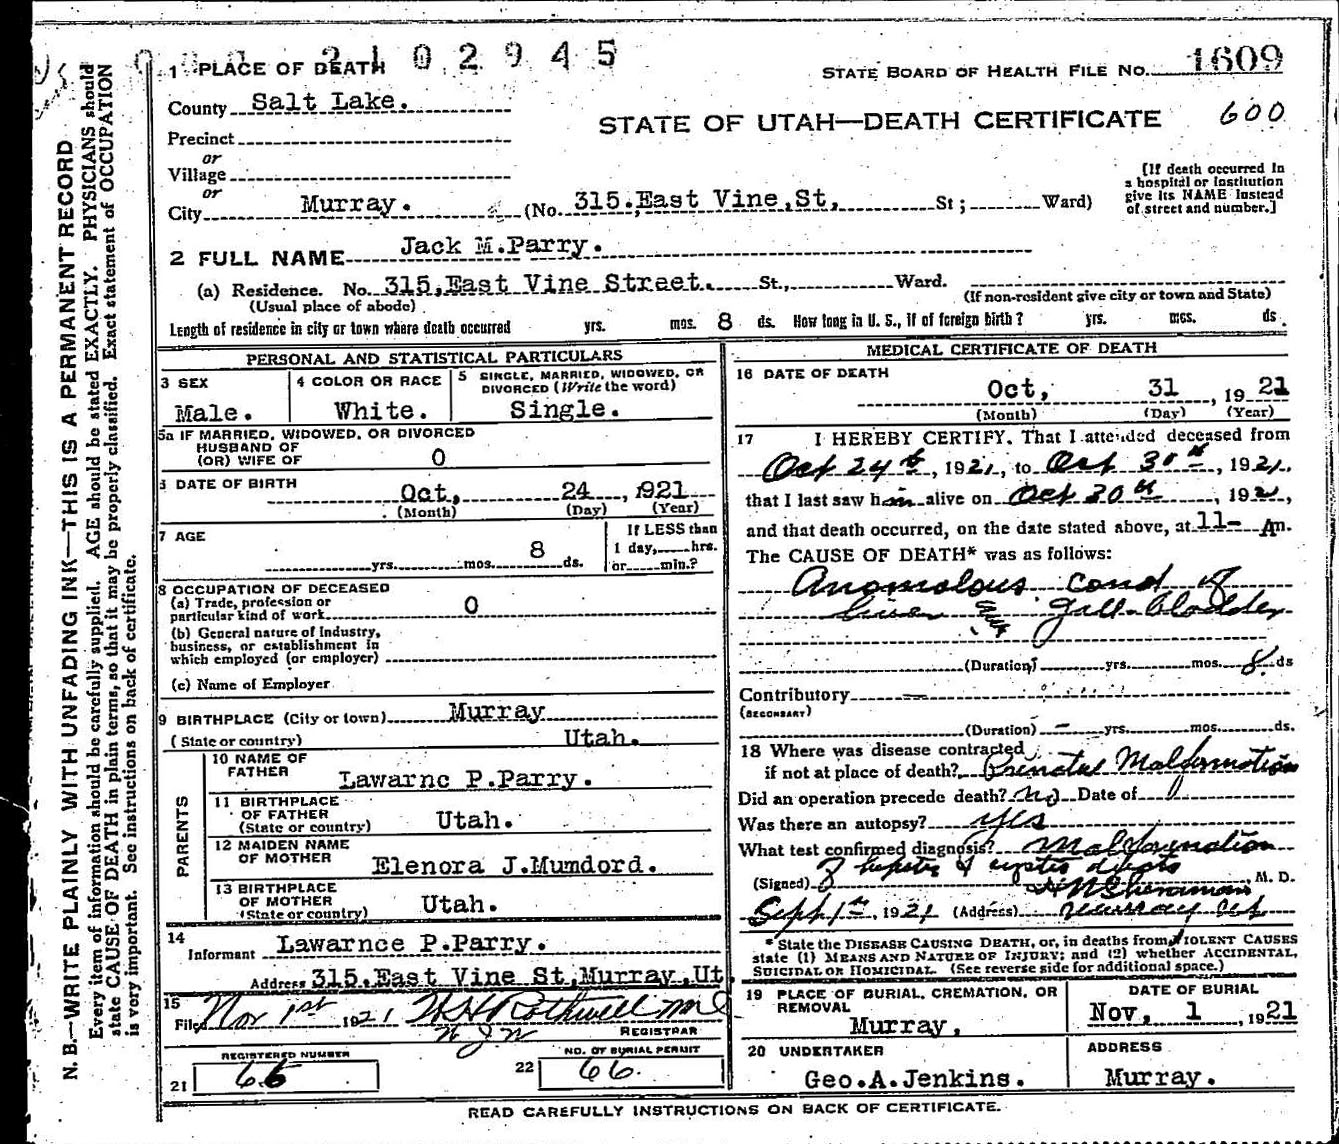 2102945
1 PLACE OF DEATH
STATE BOARD OF HEALTH FILE NO. 1609
County Salt Lake.
STATE OF UTAH—DEATH CERTIFICATE 600
Precinct
or
Village
or
City Murray. (No. 315.East Vine,St, St; Ward)
[If death occurred in
a hospital or institution
give its NAME instead
of street and number.]
2 FULL NAME Jack M.Parry.
(a) Residence. No. 315,East Vine Street. St., Ward.
(Usual place of abode)
(If non-resident give city or town and State)
Length of residence in city or town where death occurred yrs. mos. 8 ds. How long in U. S., if of foreign birth? yrs. mos. ds.
PERSONAL AND STATISTICAL PARTICULARS
3 SEX
Male.
4 COLOR OR RACE
White.
5 SINGLE, MARRIED, WIDOWED, OR
DIVORCED (Write the word)
Single.
5a IF MARRIED, WIDOWED, OR DIVORCED
HUSBAND OF
(OR) WIFE OF 0
6 DATE OF BIRTH
Oct, 24, 1921
(Month) (Day) (Year)
7 AGE
yrs. mos. 8 ds.
If LESS than
1 day, hrs.
or min.?
8 OCCUPATION OF DECEASED
(a) Trade, profession or
particular kind of work 0
(b) General nature of industry,
business, or establishment in
which employed (or employer)
(c) Name of Employer
9 BIRTHPLACE (City or town) Murray
(State or country) Utah.
PARENTS
10 NAME OF
FATHER Lawarnc P.Parry.
11 BIRTHPLACE
OF FATHER
(State or country) Utah.
12 MAIDEN NAME
OF MOTHER Elenora J.Mumdord.
13 BIRTHPLACE
OF MOTHER
(State or country) Utah.
14
Informant Lawarnce P.Parry.
Address 315,East Vine St,Murray,Ut
15
Filed Nov 1st 1921 Rothwell md
REGISTRAR
REGISTERED NUMBER
21 66
NO. OF BURIAL PERMIT
22 66.
MEDICAL CERTIFICATE OF DEATH
16 DATE OF DEATH
Oct, 31, 1921
(Month) (Day) (Year)
17 I HEREBY CERTIFY, That I attended deceased from
Oct 24th, 1921, to Oct 30th, 1921,
that I last saw him alive on Oct 30th, 192,
and that death occurred, on the date stated above, at 11- Am.
The CAUSE OF DEATH* was as follows:
Anomolous cond of
liver and gall-bladder
(Duration) yrs. mos. 8 ds
Contributory
(SECONDARY)
(Duration) yrs. mos. ds.
18 Where was disease contracted
if not at place of death? Prenatal Malformation
Did an operation precede death? No Date of
Was there an autopsy? yes
What test confirmed diagnosis? Malformation
of hepatic & cystic ducts
(Signed) M. D.
Sept 1st, 1921 (Address) Murray Ut
* State the DISEASE CAUSING DEATH, or, in deaths from VIOLENT CAUSES
state (1) MEANS AND NATURE OF INJURY; and (2) whether ACCIDENTAL,
SUICIDAL OR HOMICIDAL. (See reverse side for additional space.)
19 PLACE OF BURIAL, CREMATION, OR
REMOVAL
Murray,
DATE OF BURIAL
Nov, 1, 1921
20 UNDERTAKER
Geo.A.Jenkins.
ADDRESS
Murray.
READ CAREFULLY INSTRUCTIONS ON BACK OF CERTIFICATE.
N. B.—WRITE PLAINLY WITH UNFADING INK—THIS IS A PERMANENT RECORD
Every item of information should be carefully supplied. AGE should be stated EXACTLY. PHYSICIANS should
state CAUSE OF DEATH in plain terms, so that it may be properly classified. Exact statement of OCCUPATION
is very important. See instructions on back of certificate.